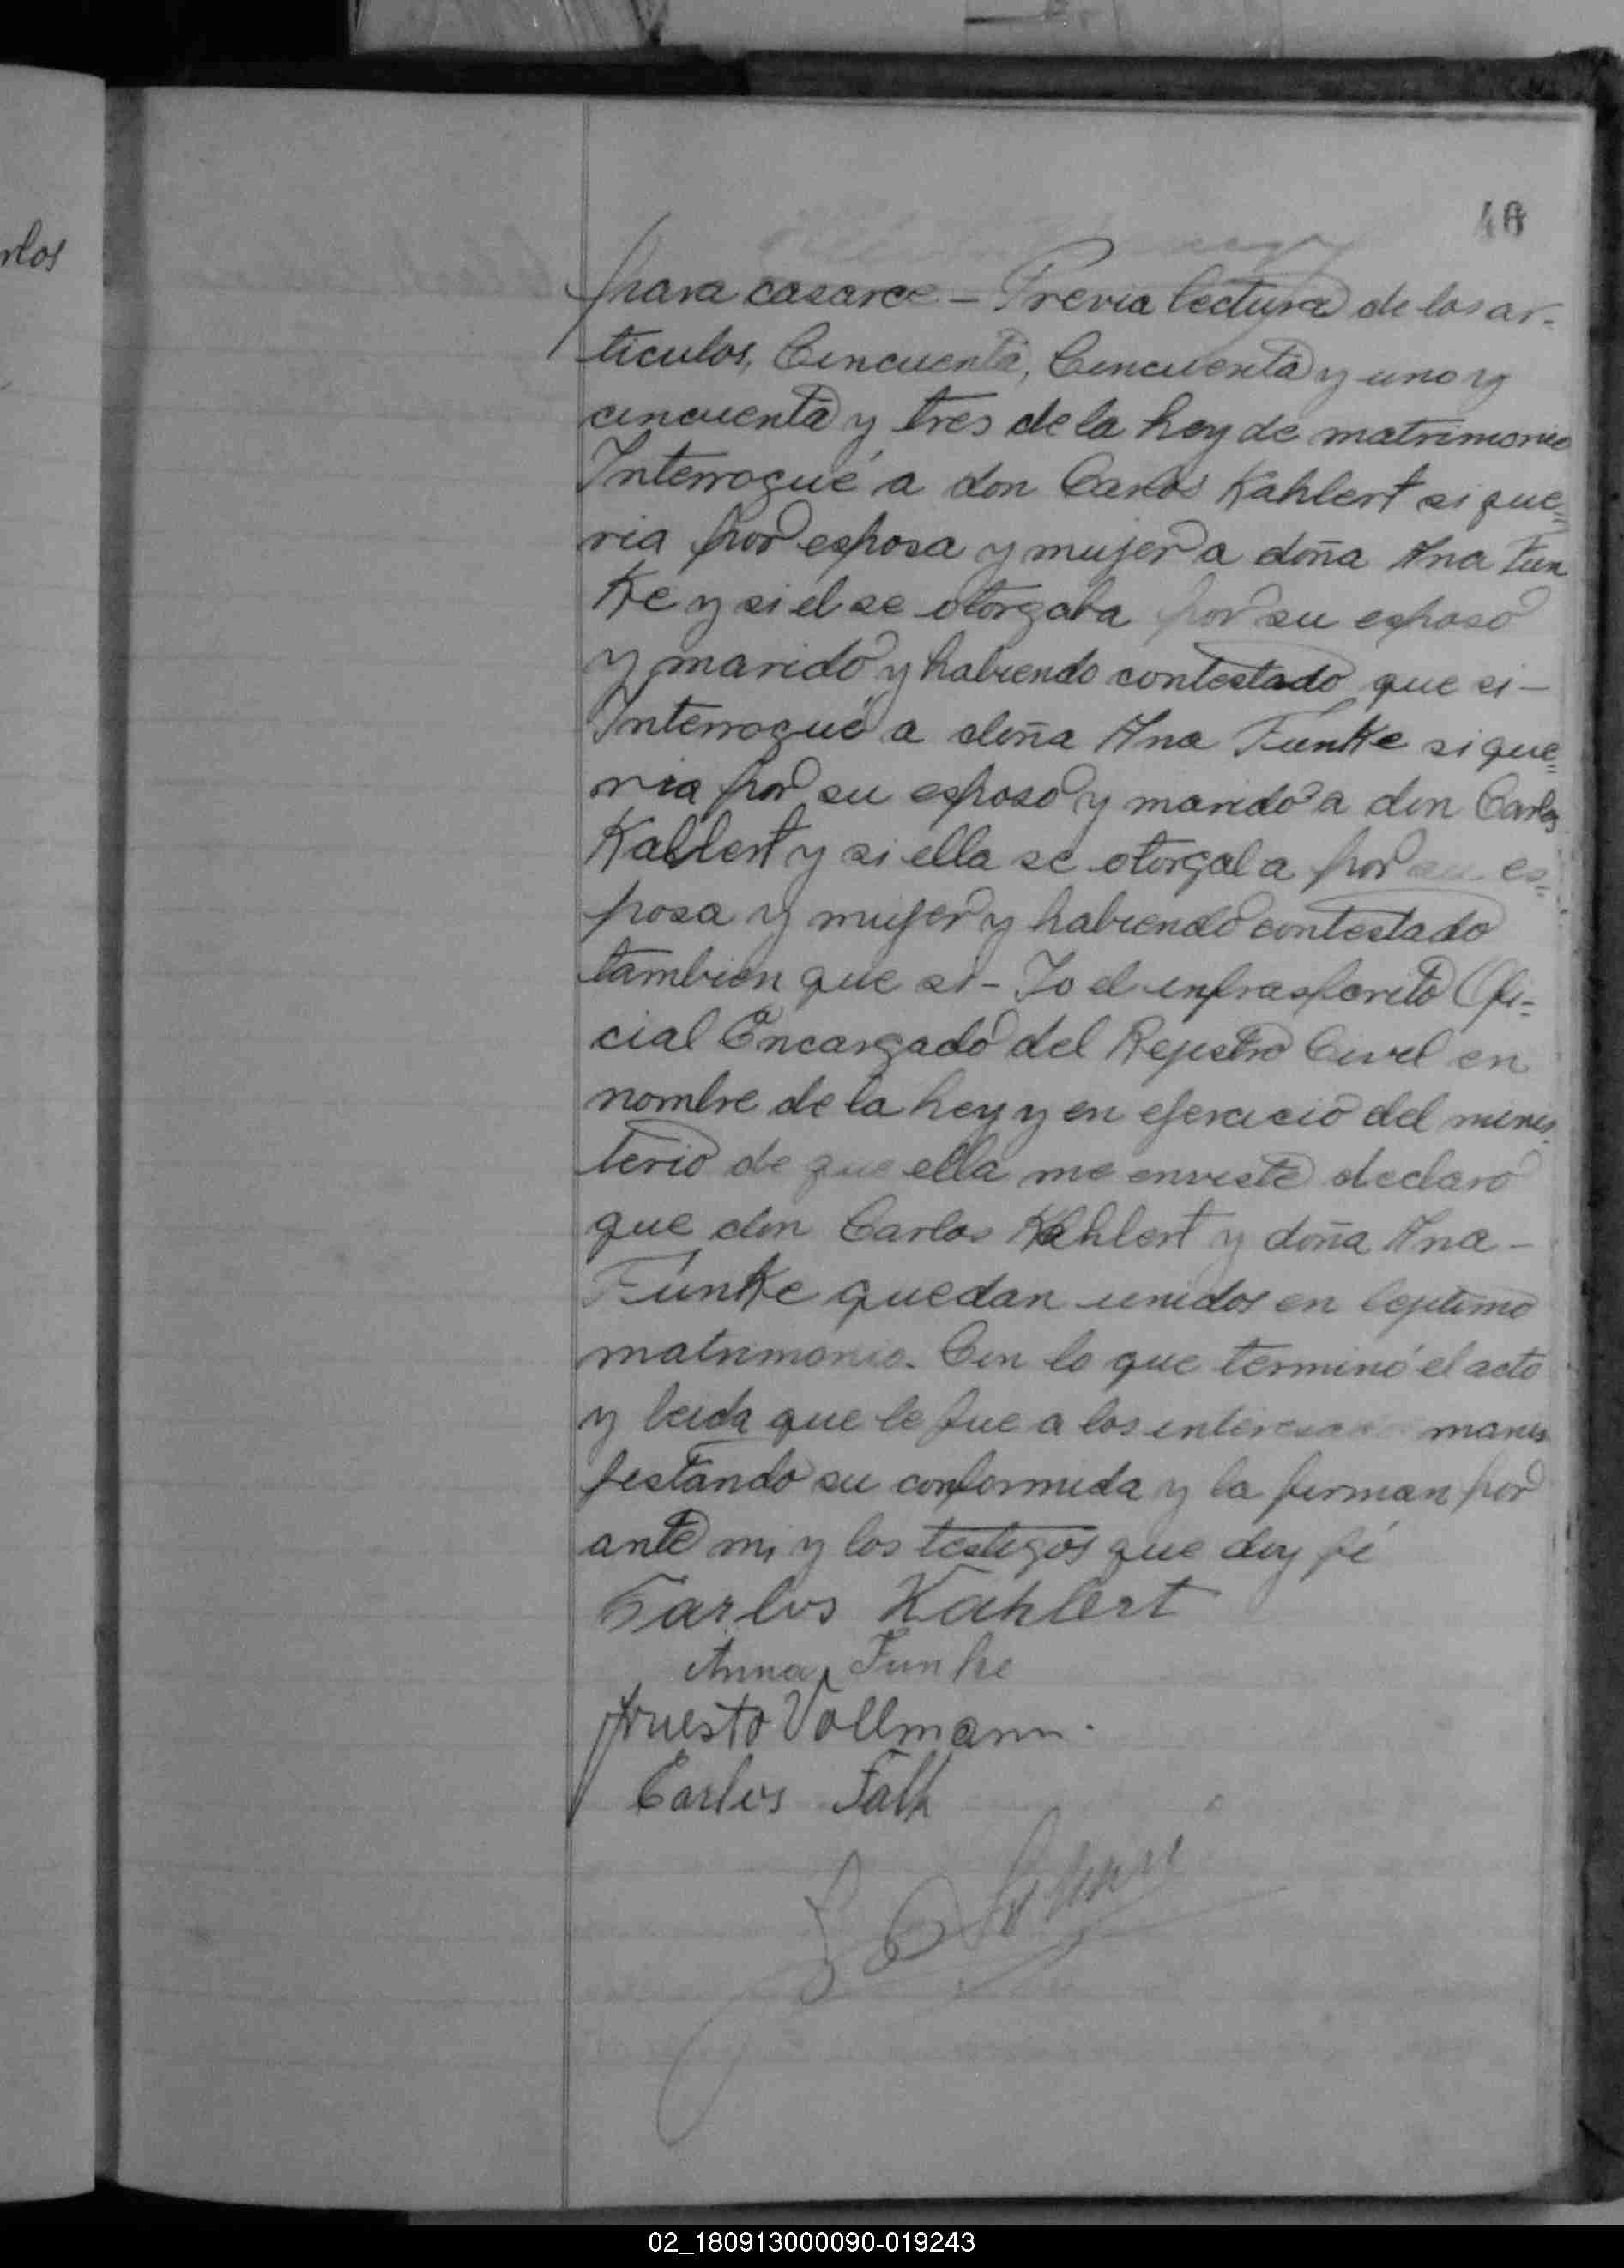 rlos
46
para casarce - Previa lectura de los ar-
ticulos, Cincuenta, Cincuenta y uno y
cincuenta y tres de la Ley de matrimonio
Interrogué a don Carlos Kahlert si que=
ria por esposa y mujer a doña Ana Fun
Ke y si el se otorgaba por su esposo
y marido y habiendo contestado que si -
Interrogué a doña Ana Funke si que=
ria por su esposo y marido a don Carlos
Kahlert y si ella se otorgaba por su es=
posa y mujer y habiendo contestado
tambien que si - Yo el infrascrito Ofi-
cial Encargado del Rejistro Civil en
nombre de la Ley y en ejercicio del minis
terio de que ella me enviste declaro
que don Carlos Kahlert y doña Ana -
Funke quedan unidos en lejitimo
matrimonio. Con lo que terminó el acto
y leida que le fue a los interesados manis
festando su conformida y la firman por
ante mi y los testigos que doy fé
Carlos Kahlert
Anna Funke
Ernesto Vollmann.
Carlos Falk
02_180913000090-019243